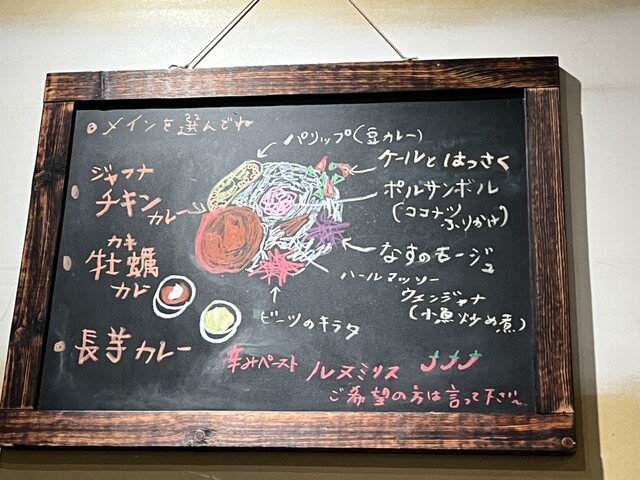 メインを選んでね
ジャフナ
チキン
カレー
カキ
牡蠣
カレー
長芋カレー
パリップ(豆カレー)
ケールとはっさく
ポルサンボル
(ココナツ
ふりかけ)
なすのモージュ
ハールマッソー
ウェンジャナ
(小魚炒め煮)
ビーツのキラタ
辛みペースト ルヌミリス
ご希望の方は言って下さい〜